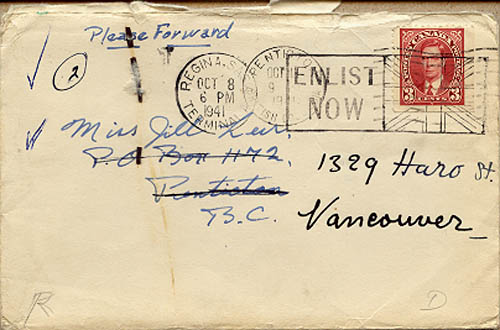 Please Forward
2
REGINA, S
OCT 8
6 PM
1941
TERMINA
PENTICTO
OCT
9
19
ENLIST
NOW
POSTES CANADA POSTAGE
3 CENTS 3
Miss Jill
P.O Box 1172,
Penticton
B.C.
1329 Haro St.
Vancouver
R
D